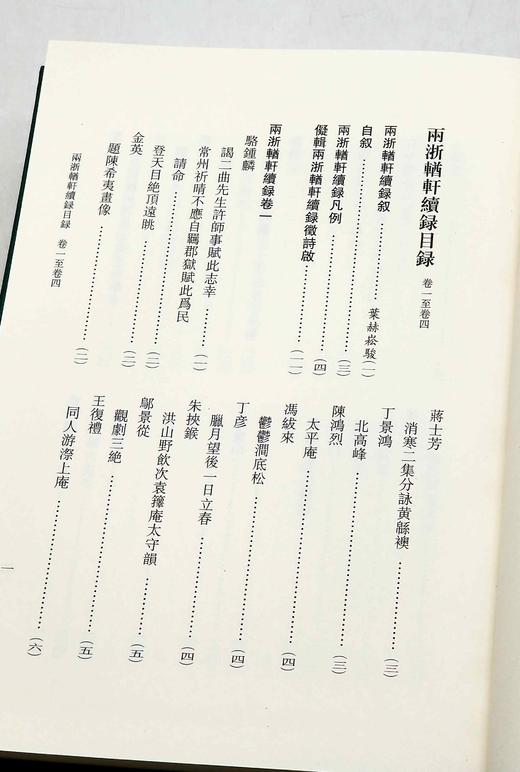 兩浙輶軒續録目録 卷一至卷四
兩浙輶軒續録叙 葉赫崧駿（一）
自叙（一）
兩浙輶軒續録凡例（三）
儗輯兩浙輶軒續録徵詩啟（四）
兩浙輶軒續録卷一（一一）
駱鍾麟
謁二曲先生許師事賦此志幸（一）
常州祈晴不應自羈郡獄賦此爲民
請命（二）
登天目絶頂遠眺（二）
金英
題陳希夷畫像（二）
蔣士芳
消寒二集分詠黄緜襖（三）
丁景鴻
北高峰（三）
陳鴻烈
太平庵（四）
馮紱來
鬱鬱澗底松（四）
丁彦
臘月望後一日立春（四）
朱挾鍭
洪山野飲次袁籜庵太守韻（五）
鄔景從
觀劇三絶（五）
王復禮
同人游漈上庵（六）
兩浙輶軒續録目録 卷一至卷四
一